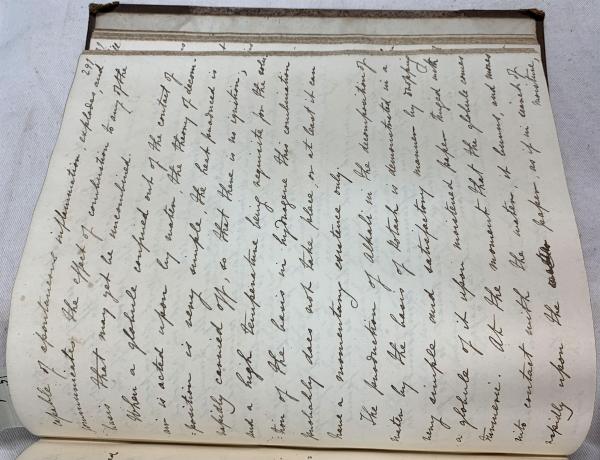 291
capable of spontaneous inflammation explodes, and
communicates the effect of combustion to any of the
basis that may yet be uncombined.
When a globule confined out of the contact of
air is acted upon by water the theory of decom-
:position is very simple, the heat produced is
rapidly carried off, so that there is no ignition;
and a high temperature being requisite for the solu
:tion of the basis in hydrogene this combination
probably does not take place, or at least it can
have a momentary existence only.
The production of Alkali in the decomposition of
water by the basis of Potash is demonstrated in a
very simple and satisfactory manner by dropping
a globule of it upon moistened paper tinged with
Turmeric. At the moment that the globule comes
into contact with the water, it burns, and moves
rapidly upon the paper, as if in search of
moisture,